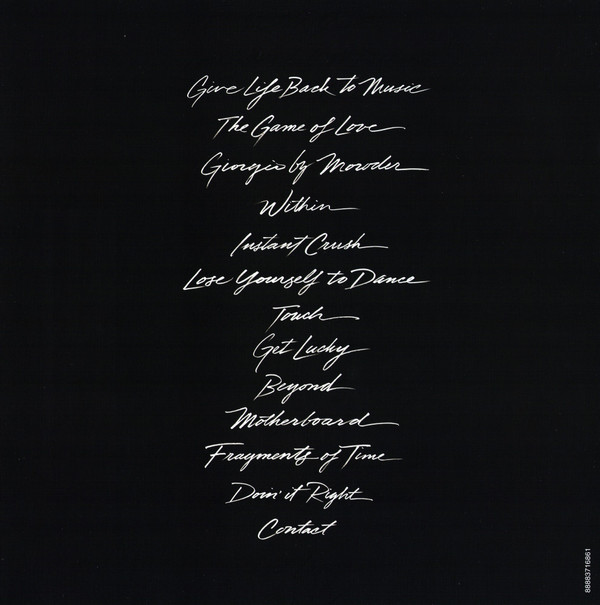 Give Life Back to Music
The Game of Love
Giorgio by Moroder
Within
Instant Crush
Lose Yourself to Dance
Touch
Get Lucky
Beyond
Motherboard
Fragments of Time
Doin' it Right
Contact
88883716861